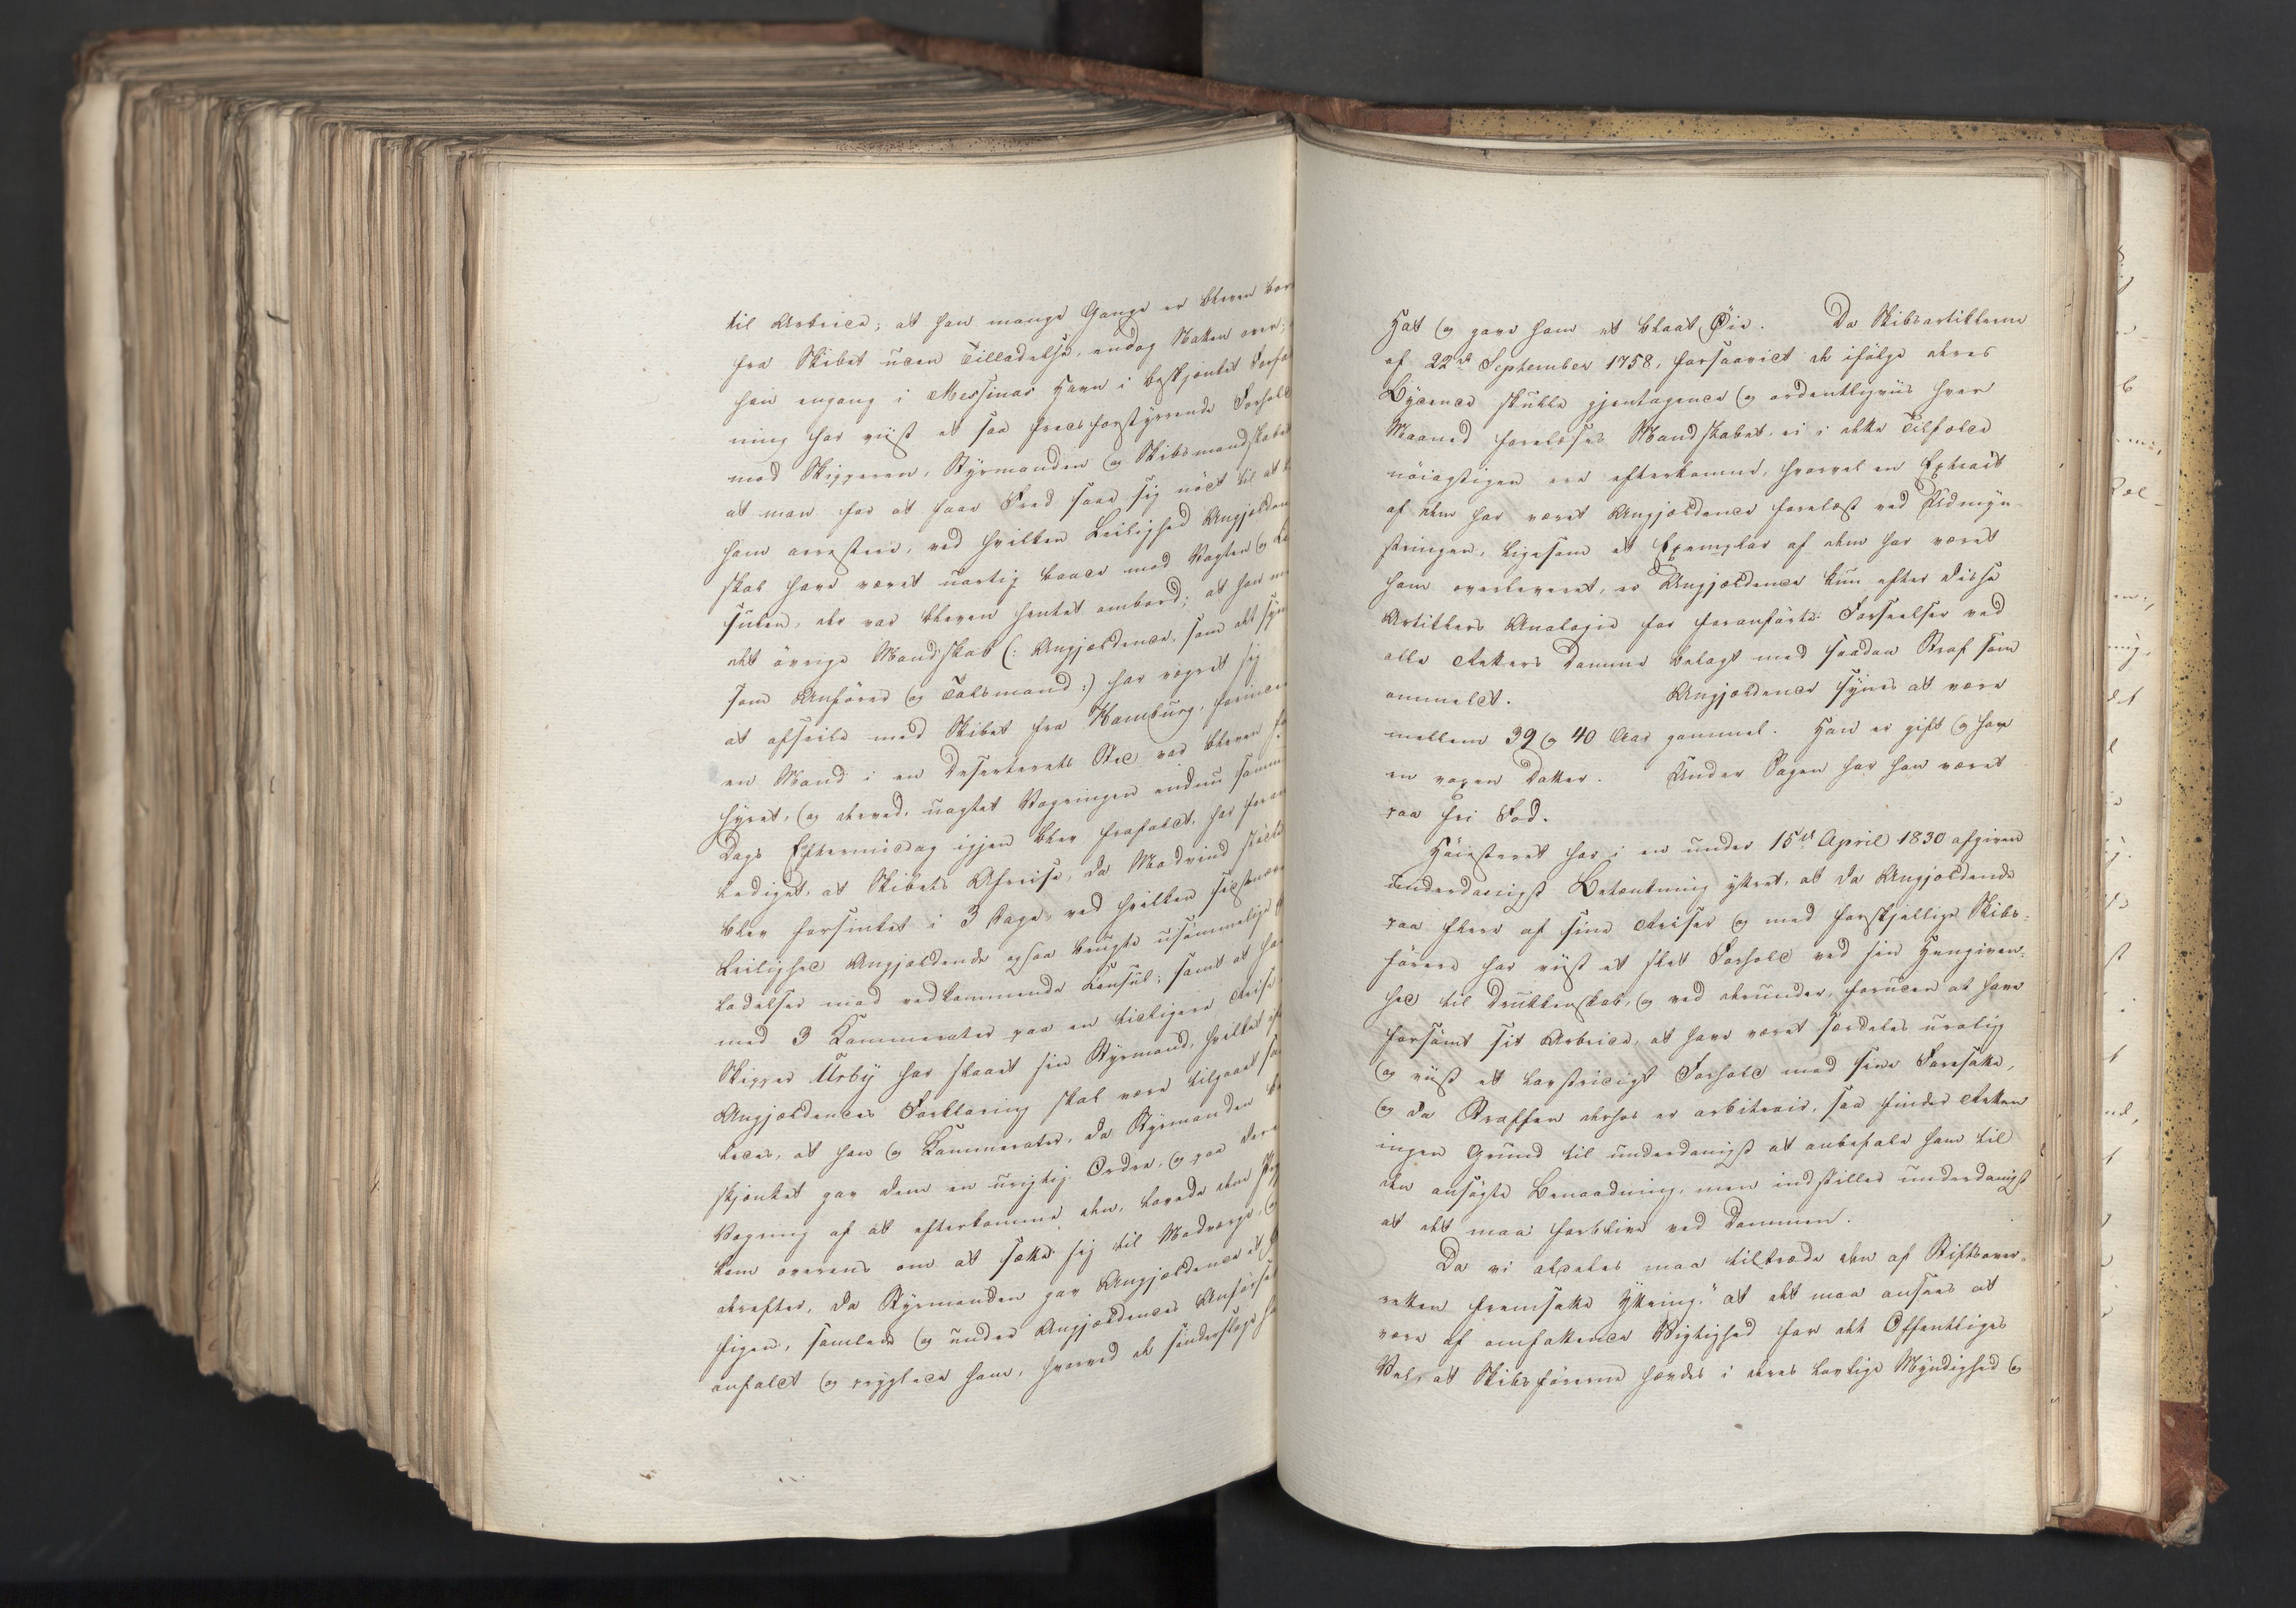 til Arbeide; at han mange Gange er bleven bor
fra Skibet uden Tilladelse, endog Natten over;
han engang i Messinas Havn i beskjænket Forfat
ning har viist et saa fredsforstyrrende Forhold
mod Skipperen, Styrmanden og Skibsmandskabet
at man for at faae Fred saae sig nødt til at
ham arrestere, ved hvilken Leilighed Angjælden
skal have været uartig baade mod Vagten og
sulen, der var bleven hentet ombord; at han
det øvrige Mandskab (: Angjældende, som det syn
som Anfører og Talsmand :) har vægret sig
at afseile med Skibet fra Hamburg, forinden
en Mand i en Deserteurs Sted var bleven
hyret, og derved, uagtet Vægringen endnu samme
Dags Eftermiddag igjen blev frafaldt, har foran
lediget, at Skibets Afreise, da Modvind
blev forsinket i 3 Dage, ved hvilken sidstnævn
Leilighed Angjældende ogsaa brugte usømmelige
ladelser mod vedkommende Consul; samt at han
med 3 Kammerater paa en tidligere Reise
Skipper Urbÿ har slaaet sin Styrmand, hvilket
Angjældendes Forklaring skal være tilgaaet saa
ledes, at han og Kammerater, da Styrmanden
skjænket gav dem en urigtig Ordre, og paa deres
Vægring af at efterkomme den, lovede dem
kom overens om at sætte sig til Modværge, og
derefter, da Styrmanden gav Angjældende et
figen, samlede og under Angjældendes Anførsel
anfaldt og pryglede ham, hvorved de sønderslog
Hat og gave ham et blaat Øie. Da Skibsartiklerne
af 22de September 1758, forsaavidt de ifølge deres
Bydende skulle gjentagende og ordentligviis hver
Maaned forelæses Mandskabet, ei i dette Tilfælde
nøiagtigen ere efterkomne, hvorvel en Extract
af dem har været Angjældende forelæst ved Udmyn-
stringen, ligesom et Exemplar af dem har været
ham overleveret, er Angjældende kun efter disse
Artiklers Analogie for foranførte Forseelser ved
alle Retters Domme belagt med saadan Straf som
ommeldt. Angjældende synes at være
mellem 39 og 40 Aar gammel. Han er gift og har
en voxen Datter. Under Sagen har han været
paa fri Fod.
Høiesteret har i en under 15de April 1830 afgiven
underdanigst Betænkning yttret, at da Angjældende
paa flere af sine Reiser og med forskjellige Skibs-
førere har viist et slet Forhold ved sin Hengiven-
hed til Drukkenskab, og ved derunder, foruden at have
forsømt sit Arbeide, at have været særdeles urolig
og viist et lovstridigt Forhold mod sine Foresatte,
og da Straffen derhos er arbitrair, saa finder Retten
ingen Grund til underdanigst at anbefale ham til
den ansøgte Benaadning, men indstiller underdanigst
at det maa forblive ved Dommen.
Da vi aldeles maa tiltræde den af Stiftsover-
retten fremsatte Yttring: "at det maa ansees at
være af omfattende Vigtighed for det Offentliges
Vel, at Skibsførerne hævdes i deres lovlige Myndighed og